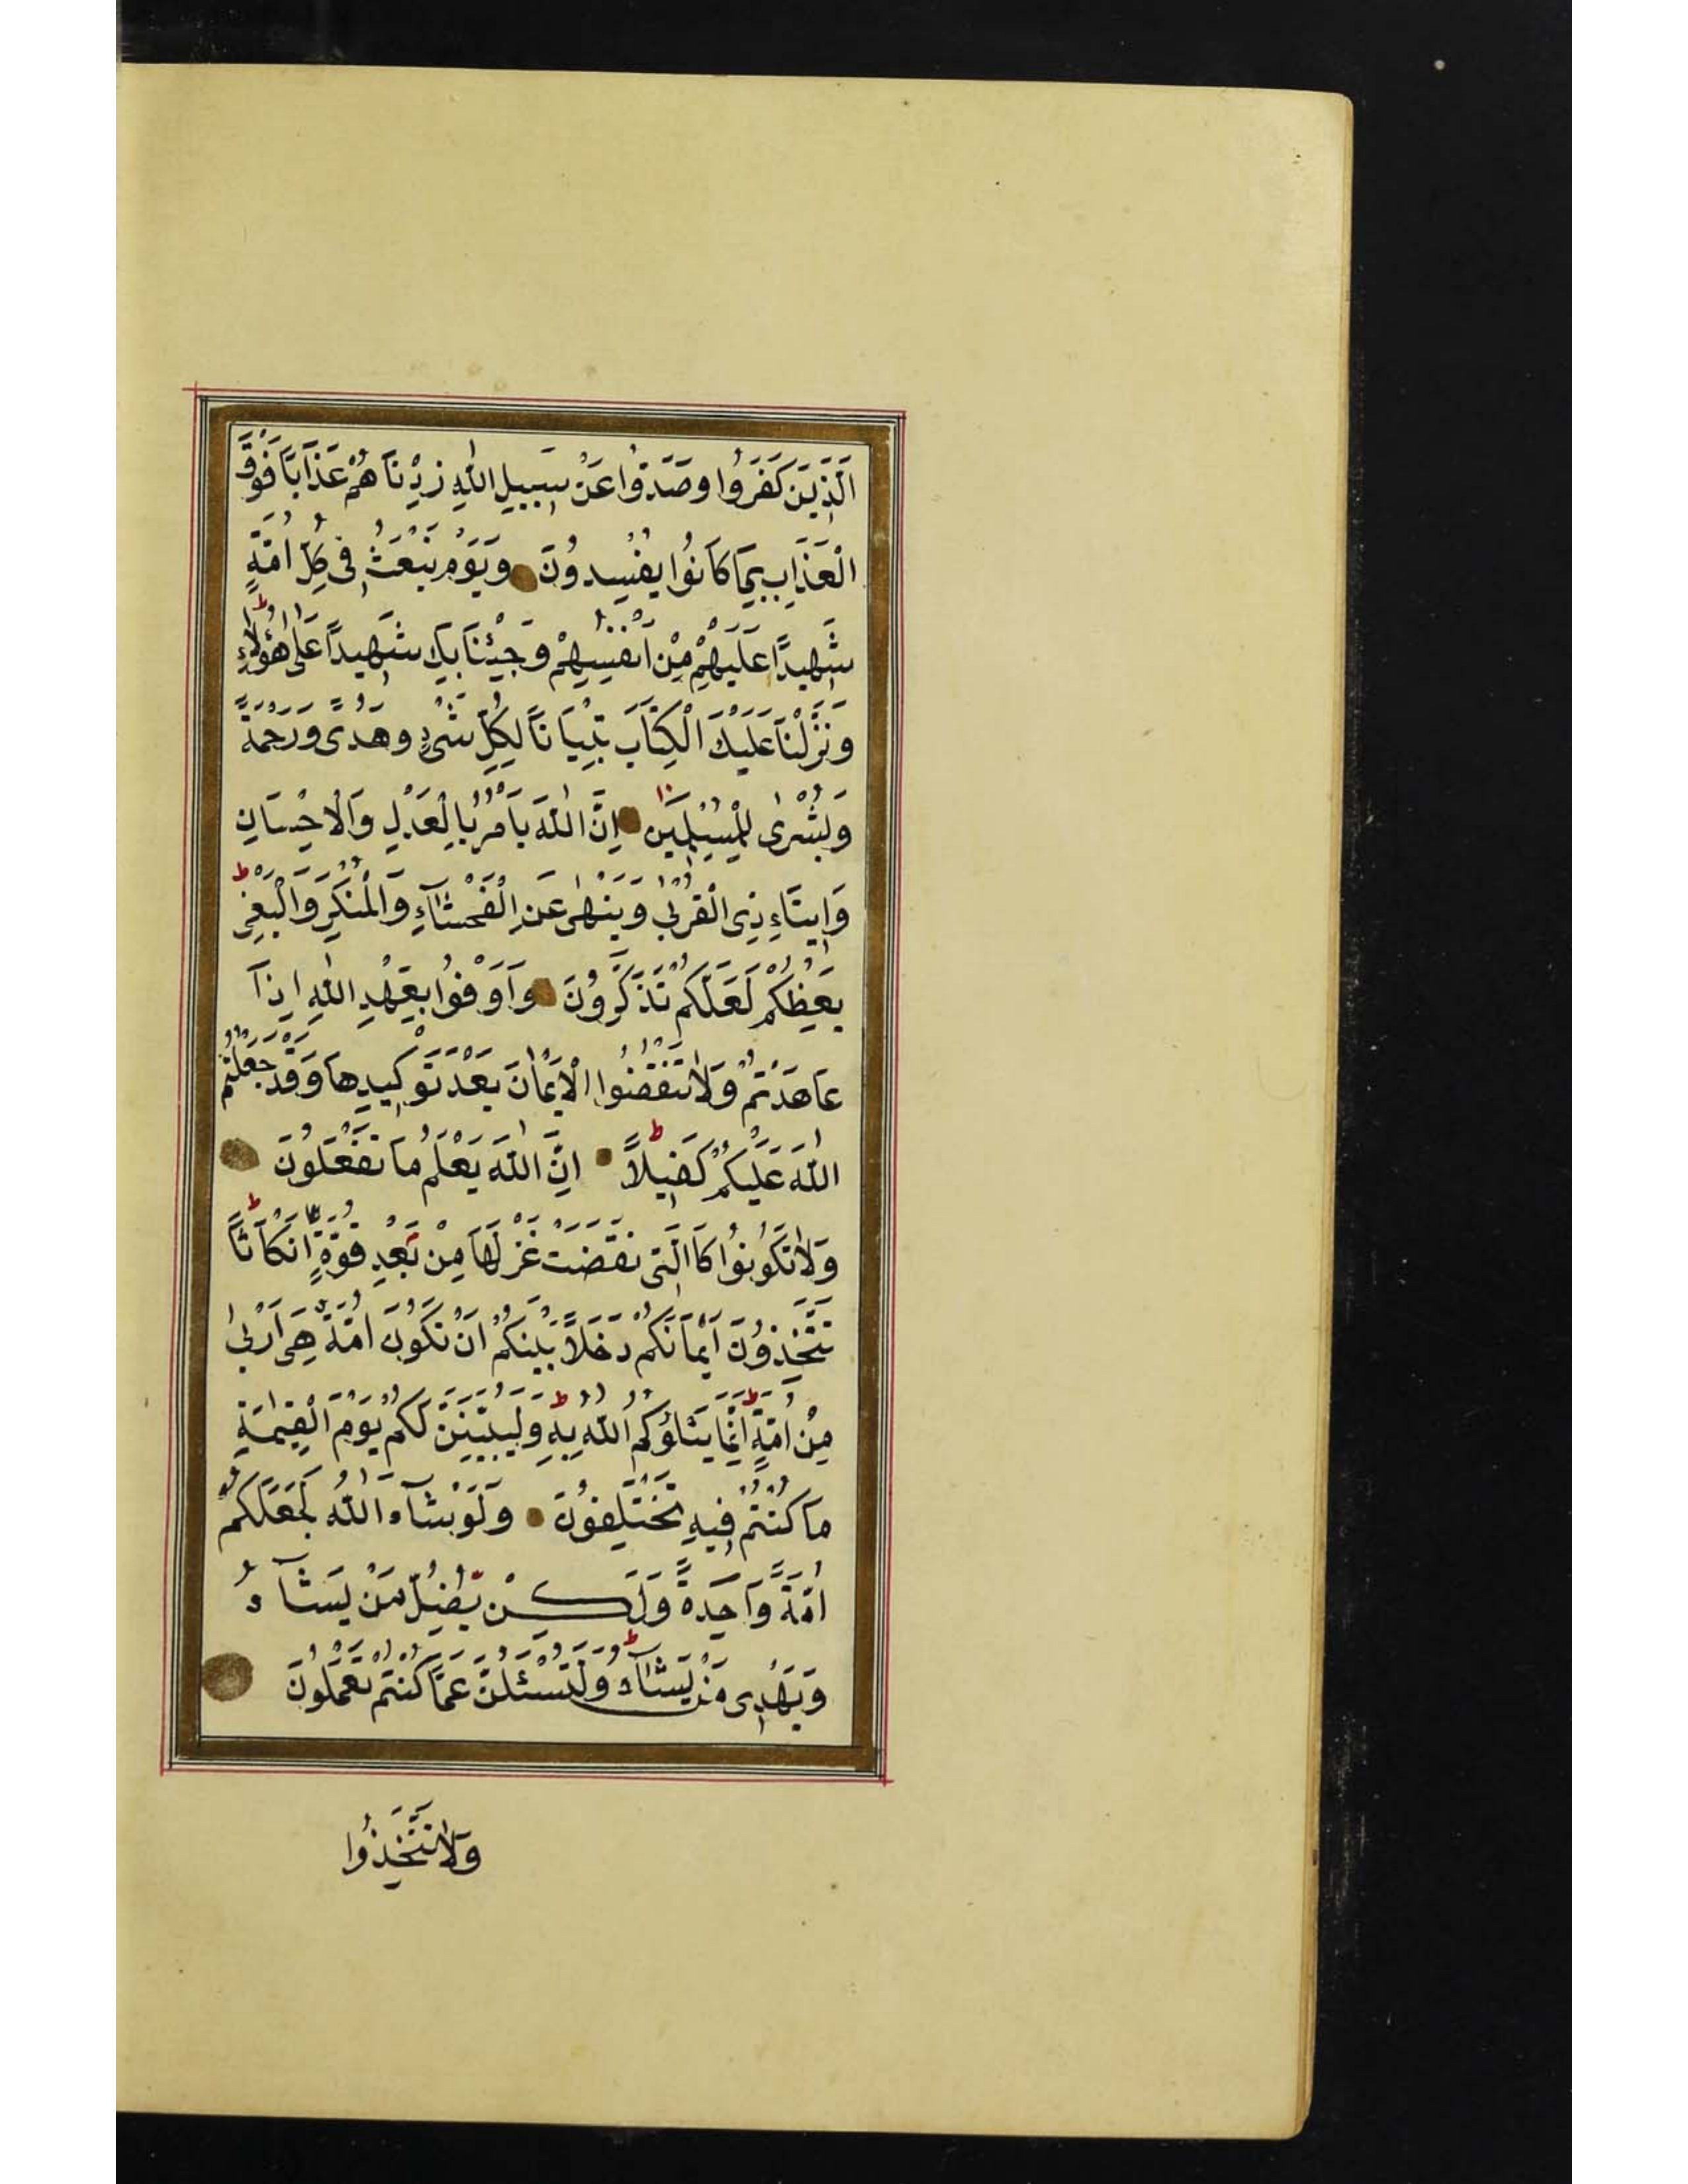 اَلَّذِينَ كَفَرُوا وَصَدُّوا عَنْ سَبِيلِ اللّٰهِ زِدْنَاهُمْ عَذَابًا فَوْقَ
الْعَذَابِ بِمَا كَانُوا يُفْسِدُونَ وَيَوْمَ نَبْعَثُ فِى كُلِّ اُمَّةٍ
شَهِيدًا عَلَيْهِمْ مِنْ اَنْفُسِهِمْ وَجِئْنَا بِكَ شَهِيدًا عَلٰى هٰؤُلَاءِ ط
وَنَزَّلْنَا عَلَيْكَ الْكِتَابَ تِبْيَانًا لِكُلِّ شَىْءٍ وَهُدًى وَرَحْمَةً
وَبُشْرٰى لِلْمُسْلِمِينَ اِنَّ اللّٰهَ يَاْمُرُ بِالْعَدْلِ وَالْاِحْسَانِ
وَاِيتَاءِ ذِى الْقُرْبٰى وَيَنْهٰى عَنِ الْفَحْشَآءِ وَالْمُنْكَرِ وَالْبَغْىِ ط
يَعِظُكُمْ لَعَلَّكُمْ تَذَكَّرُونَ وَاَوْفُوا بِعَهْدِ اللّٰهِ اِذَا
عَاهَدْتُمْ وَلَا تَنْقُضُوا الْاَيْمَانَ بَعْدَ تَوْكِيدِهَا وَقَدْ جَعَلْتُمُ
اللّٰهَ عَلَيْكُمْ كَفِيلًا ط اِنَّ اللّٰهَ يَعْلَمُ مَا تَفْعَلُونَ
وَلَا تَكُونُوا كَالَّتِى نَقَضَتْ غَزْلَهَا مِنْ بَعْدِ قُوَّةٍ اَنْكَاثًا ط
تَتَّخِذُونَ اَيْمَانَكُمْ دَخَلًا بَيْنَكُمْ اَنْ تَكُونَ اُمَّةٌ هِىَ اَرْبٰى
مِنْ اُمَّةٍ ط اِنَّمَا يَبْلُوكُمُ اللّٰهُ بِهِ ط وَلَيُبَيِّنَنَّ لَكُمْ يَوْمَ الْقِيٰمَةِ
مَا كُنْتُمْ فِيهِ تَخْتَلِفُونَ وَلَوْ شَآءَ اللّٰهُ لَجَعَلَكُمْ
اُمَّةً وَاحِدَةً وَلٰكِنْ يُضِلُّ مَنْ يَشَآءُ
وَيَهْدِى مَنْ يَشَآءُ ط وَلَتُسْئَلُنَّ عَمَّا كُنْتُمْ تَعْمَلُونَ
وَلَا تَتَّخِذُوا